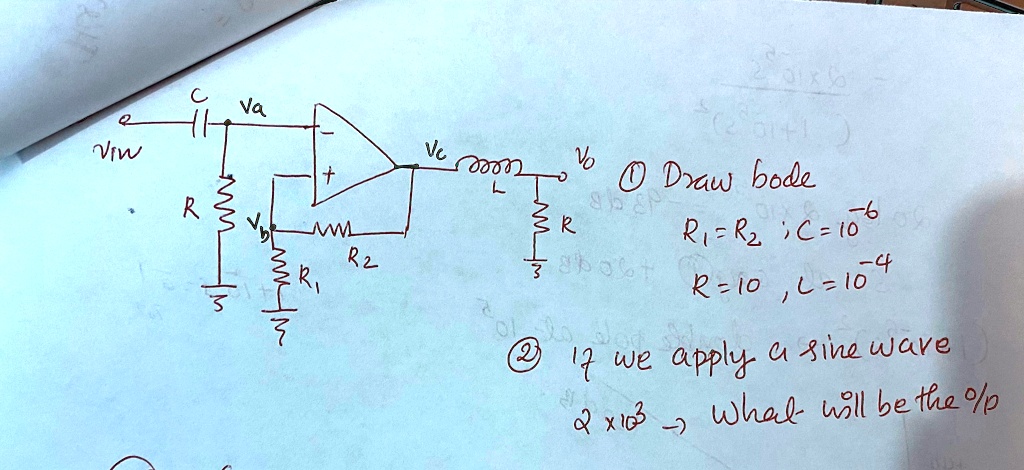 C
Va
Vin
Vc
Vo
L
R
Vb
R
R2
R1
① Draw bode
R1 = R2 ; C = 10^-6
R = 10 , L = 10^-4
② If we apply a sine wave
2 x 10^3 → What will be the o/p